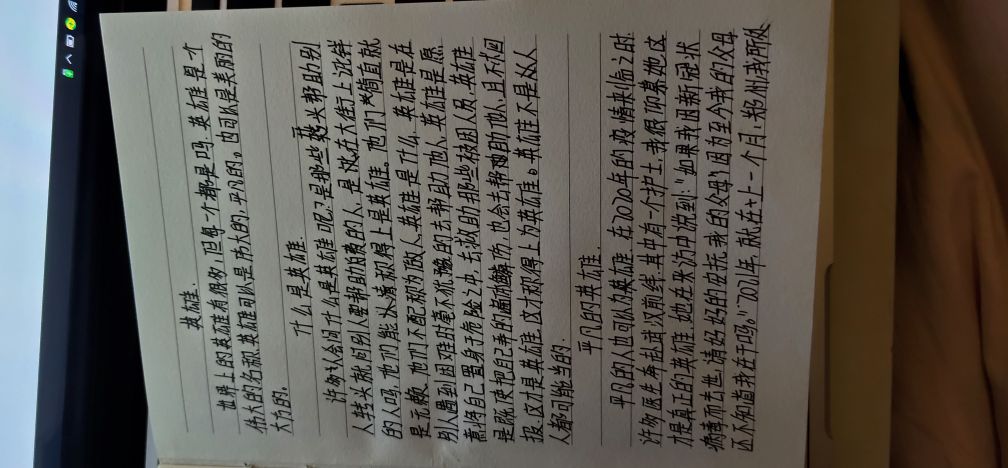 英雄.
世界上的英雄有很多,但每一个都是吗,英雄是个
伟大的名称,英雄可以是伟大的,平凡的。内可以是美丽的
大方的。
什么是英雄.
许多人会问什么是英雄呢?是那些 头帮助别
人转头就问别人要帮助费的人,是 在大街上泼鲜
的人吗,他们能 称得上是英雄。他们 简直就
是无赖,他们不配称为做人,英雄是什么,英雄是在
别人遇到困难时毫不犹豫的去帮助他人,英雄是愿
意将自己置身于危险之中,去救助那些被困人员,英雄
是既使把自己弄的遍体鳞伤,也会去帮助他人,且不求回
报,这才是英雄,这才称得上为英雄。英雄不是人人
人都可能当的.
平凡的英雄.
平凡的人也可以为英雄,在2020年的疫情来临之时
许多医生奔赴武汉前线,其中有一个护士,我很仰慕她,这
才是真正的英雄,她在采访中说到:"如果我因新冠状
病毒而去世,请好好的安抚我的父母,因为至今我的父母
还不知道我在干吗。"2021年,就在上一个月,郑州我所处